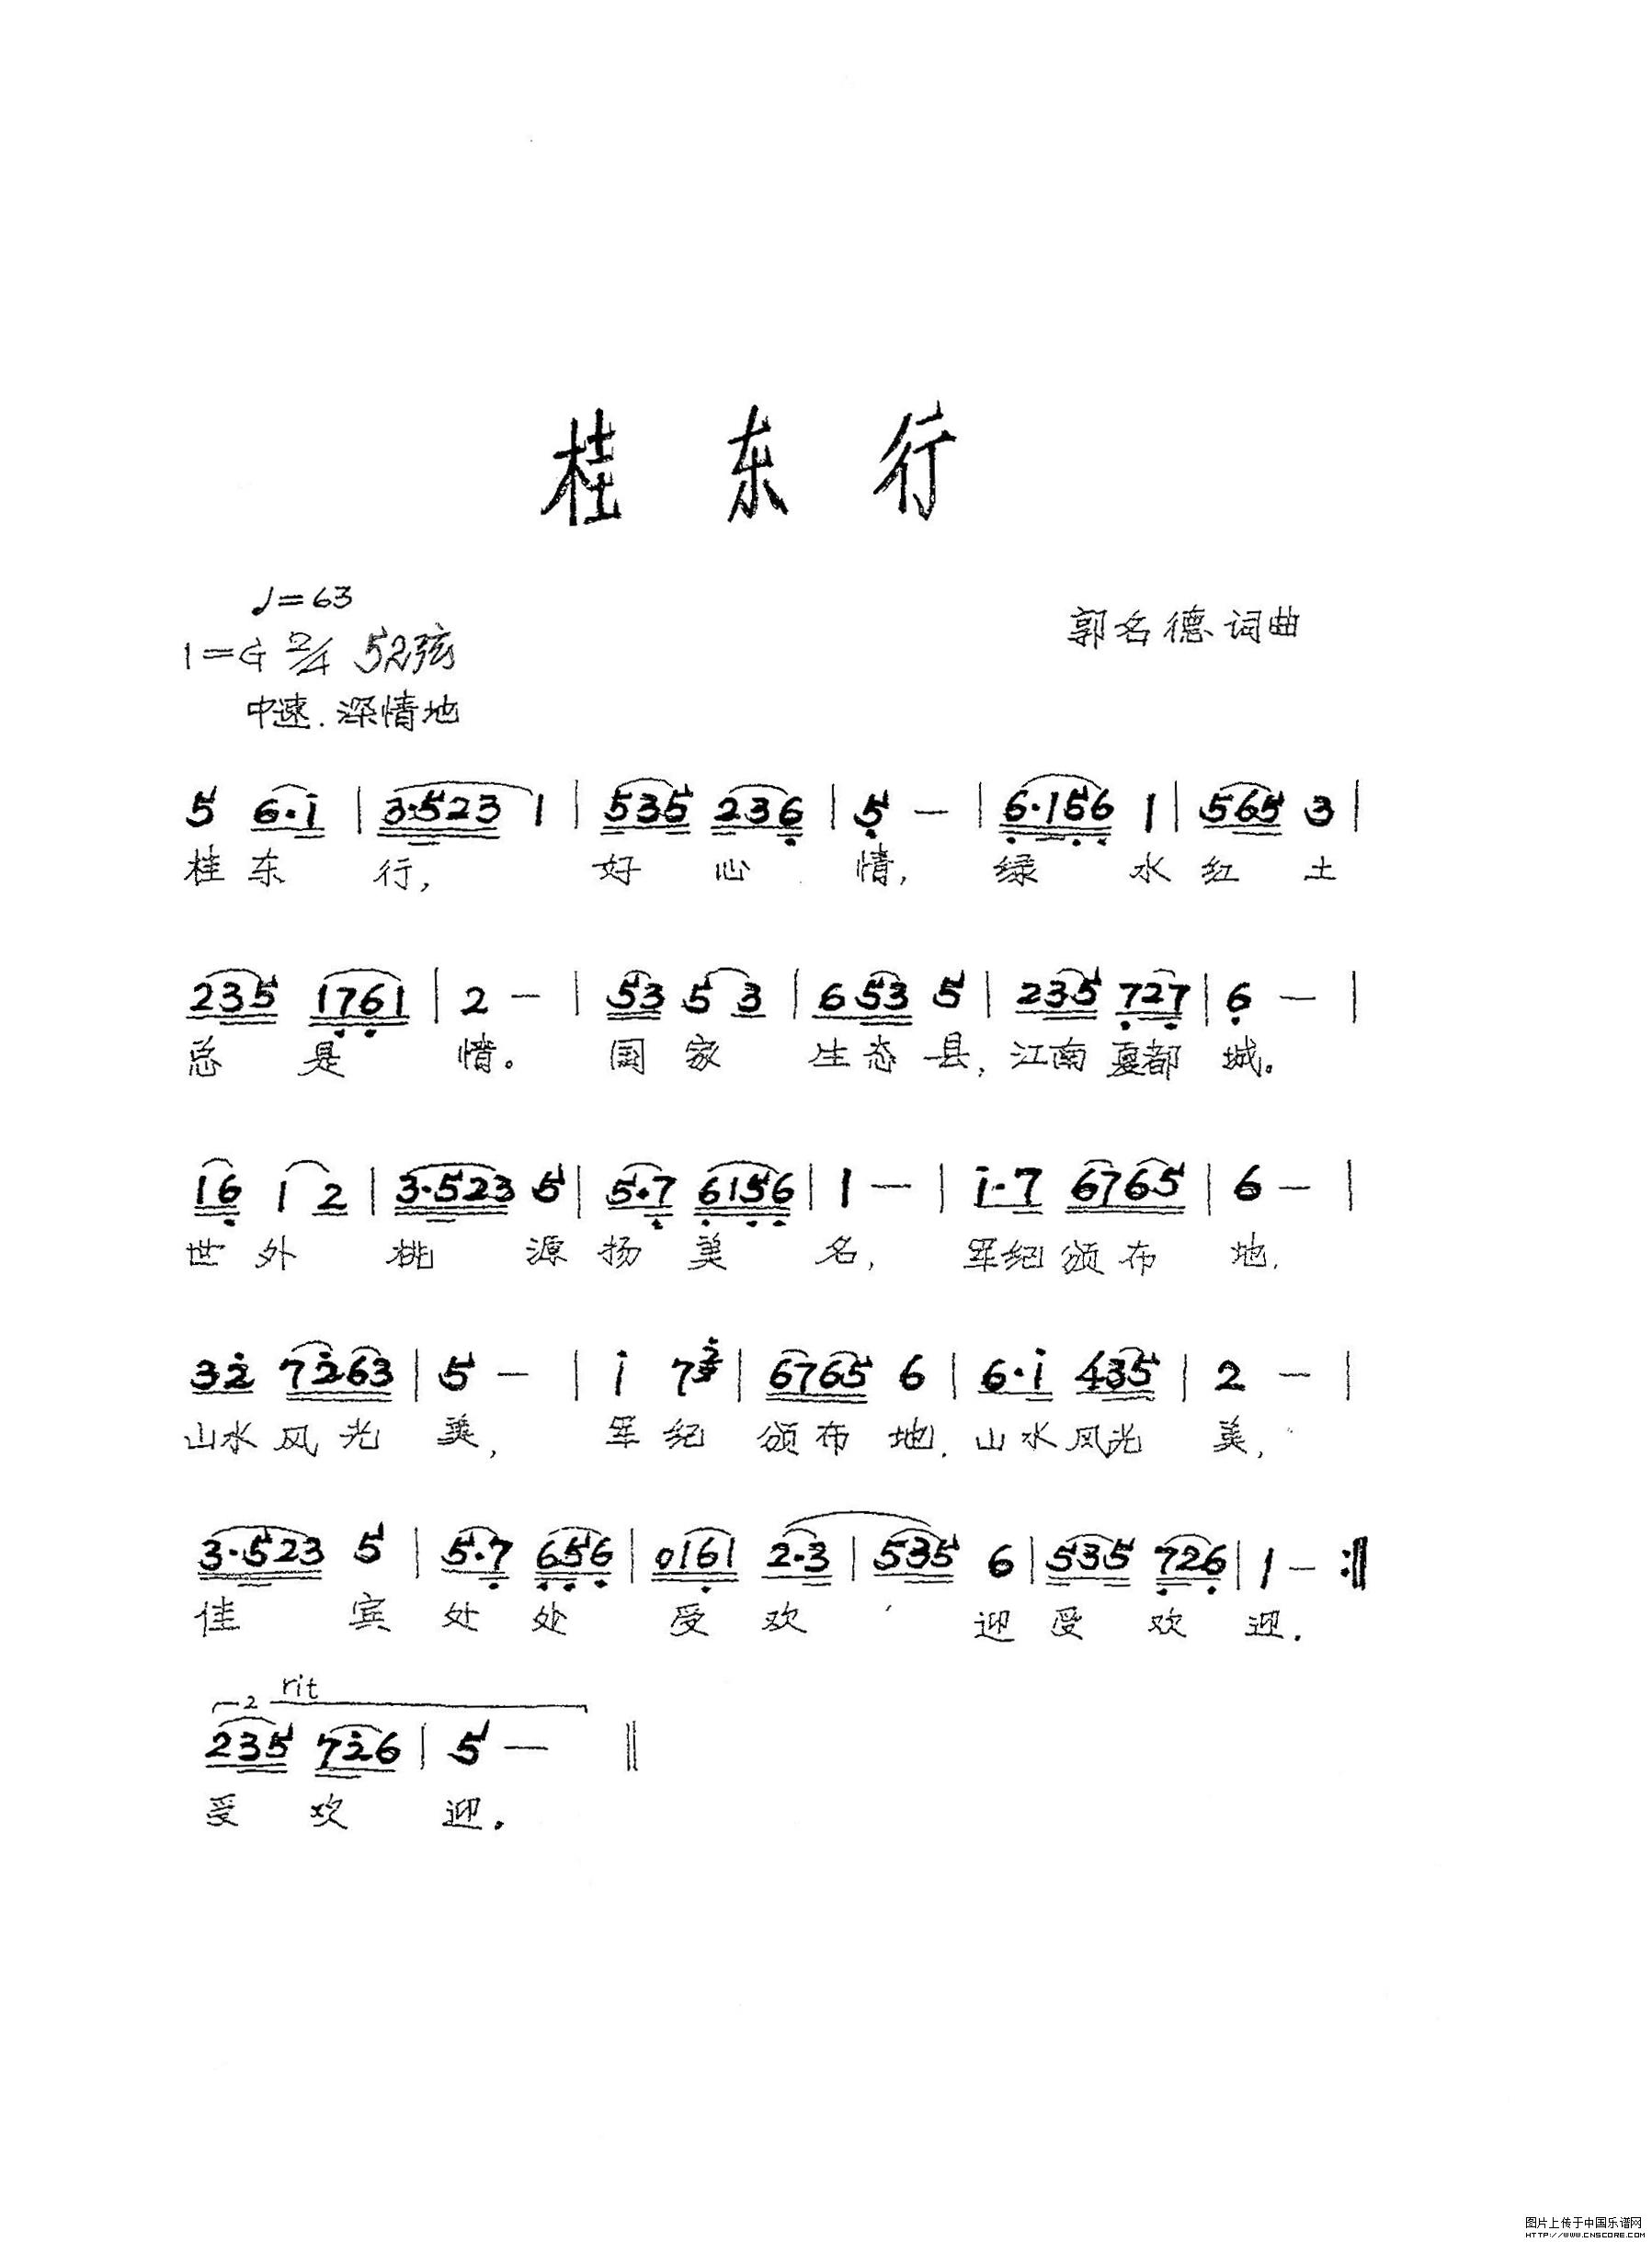 桂东行
♩=63
郭名德词曲
1=G 2/4 52弦
中速.深情地
5 6·i | 3·523 1 | 535 236 | 5 — | 6·156 1 | 565 3 |
桂东行, 好心情, 绿水红土
235 1761 | 2 — | 53 5 3 | 653 5 | 235 727 | 6 — |
总是情。国家生态县,江南夏都城。
16 1 2 | 3·523 5 | 5·7 6156 | 1 — | i·7 6765 | 6 — |
世外桃源扬美名, 军纪颁布地.
32 7263 | 5 — | i 7 | 6765 6 | 6·i 435 | 2 — |
山水风光美, 军纪颁布地.山水风光美,
3·523 5 | 5·7 656 | 0161 2·3 | 535 6 | 535 726 | 1 — :‖
佳宾处处受欢迎受欢迎.
2 rit
235 726 | 5 — ‖
受欢迎.
图片上传于中国乐谱网
HTTP://WWW.CNSCORE.COM